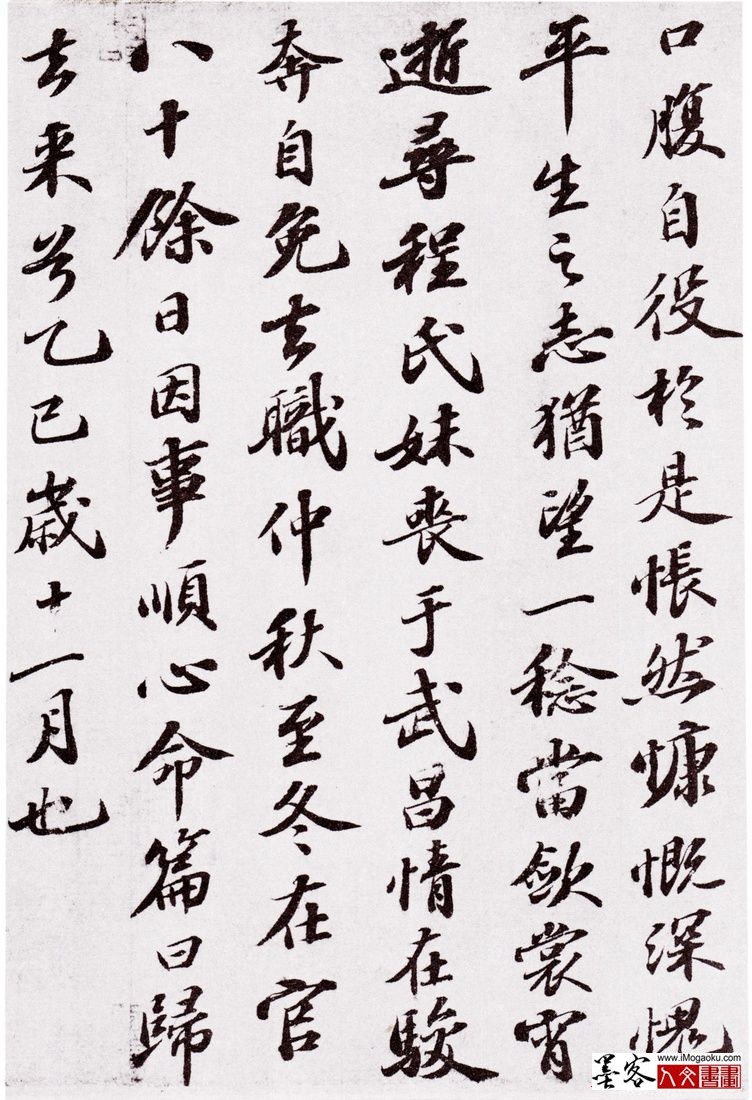 口腹自役於是悵然慷慨深愧
平生之志猶望一稔當歛裳宵
逝尋程氏妹喪于武昌情在駿
奔自免去職仲秋至冬在官
八十餘日因事順心命篇曰歸
去来兮乙巳歲十一月也
墨客
www.iMogaoku.com
人文書畫